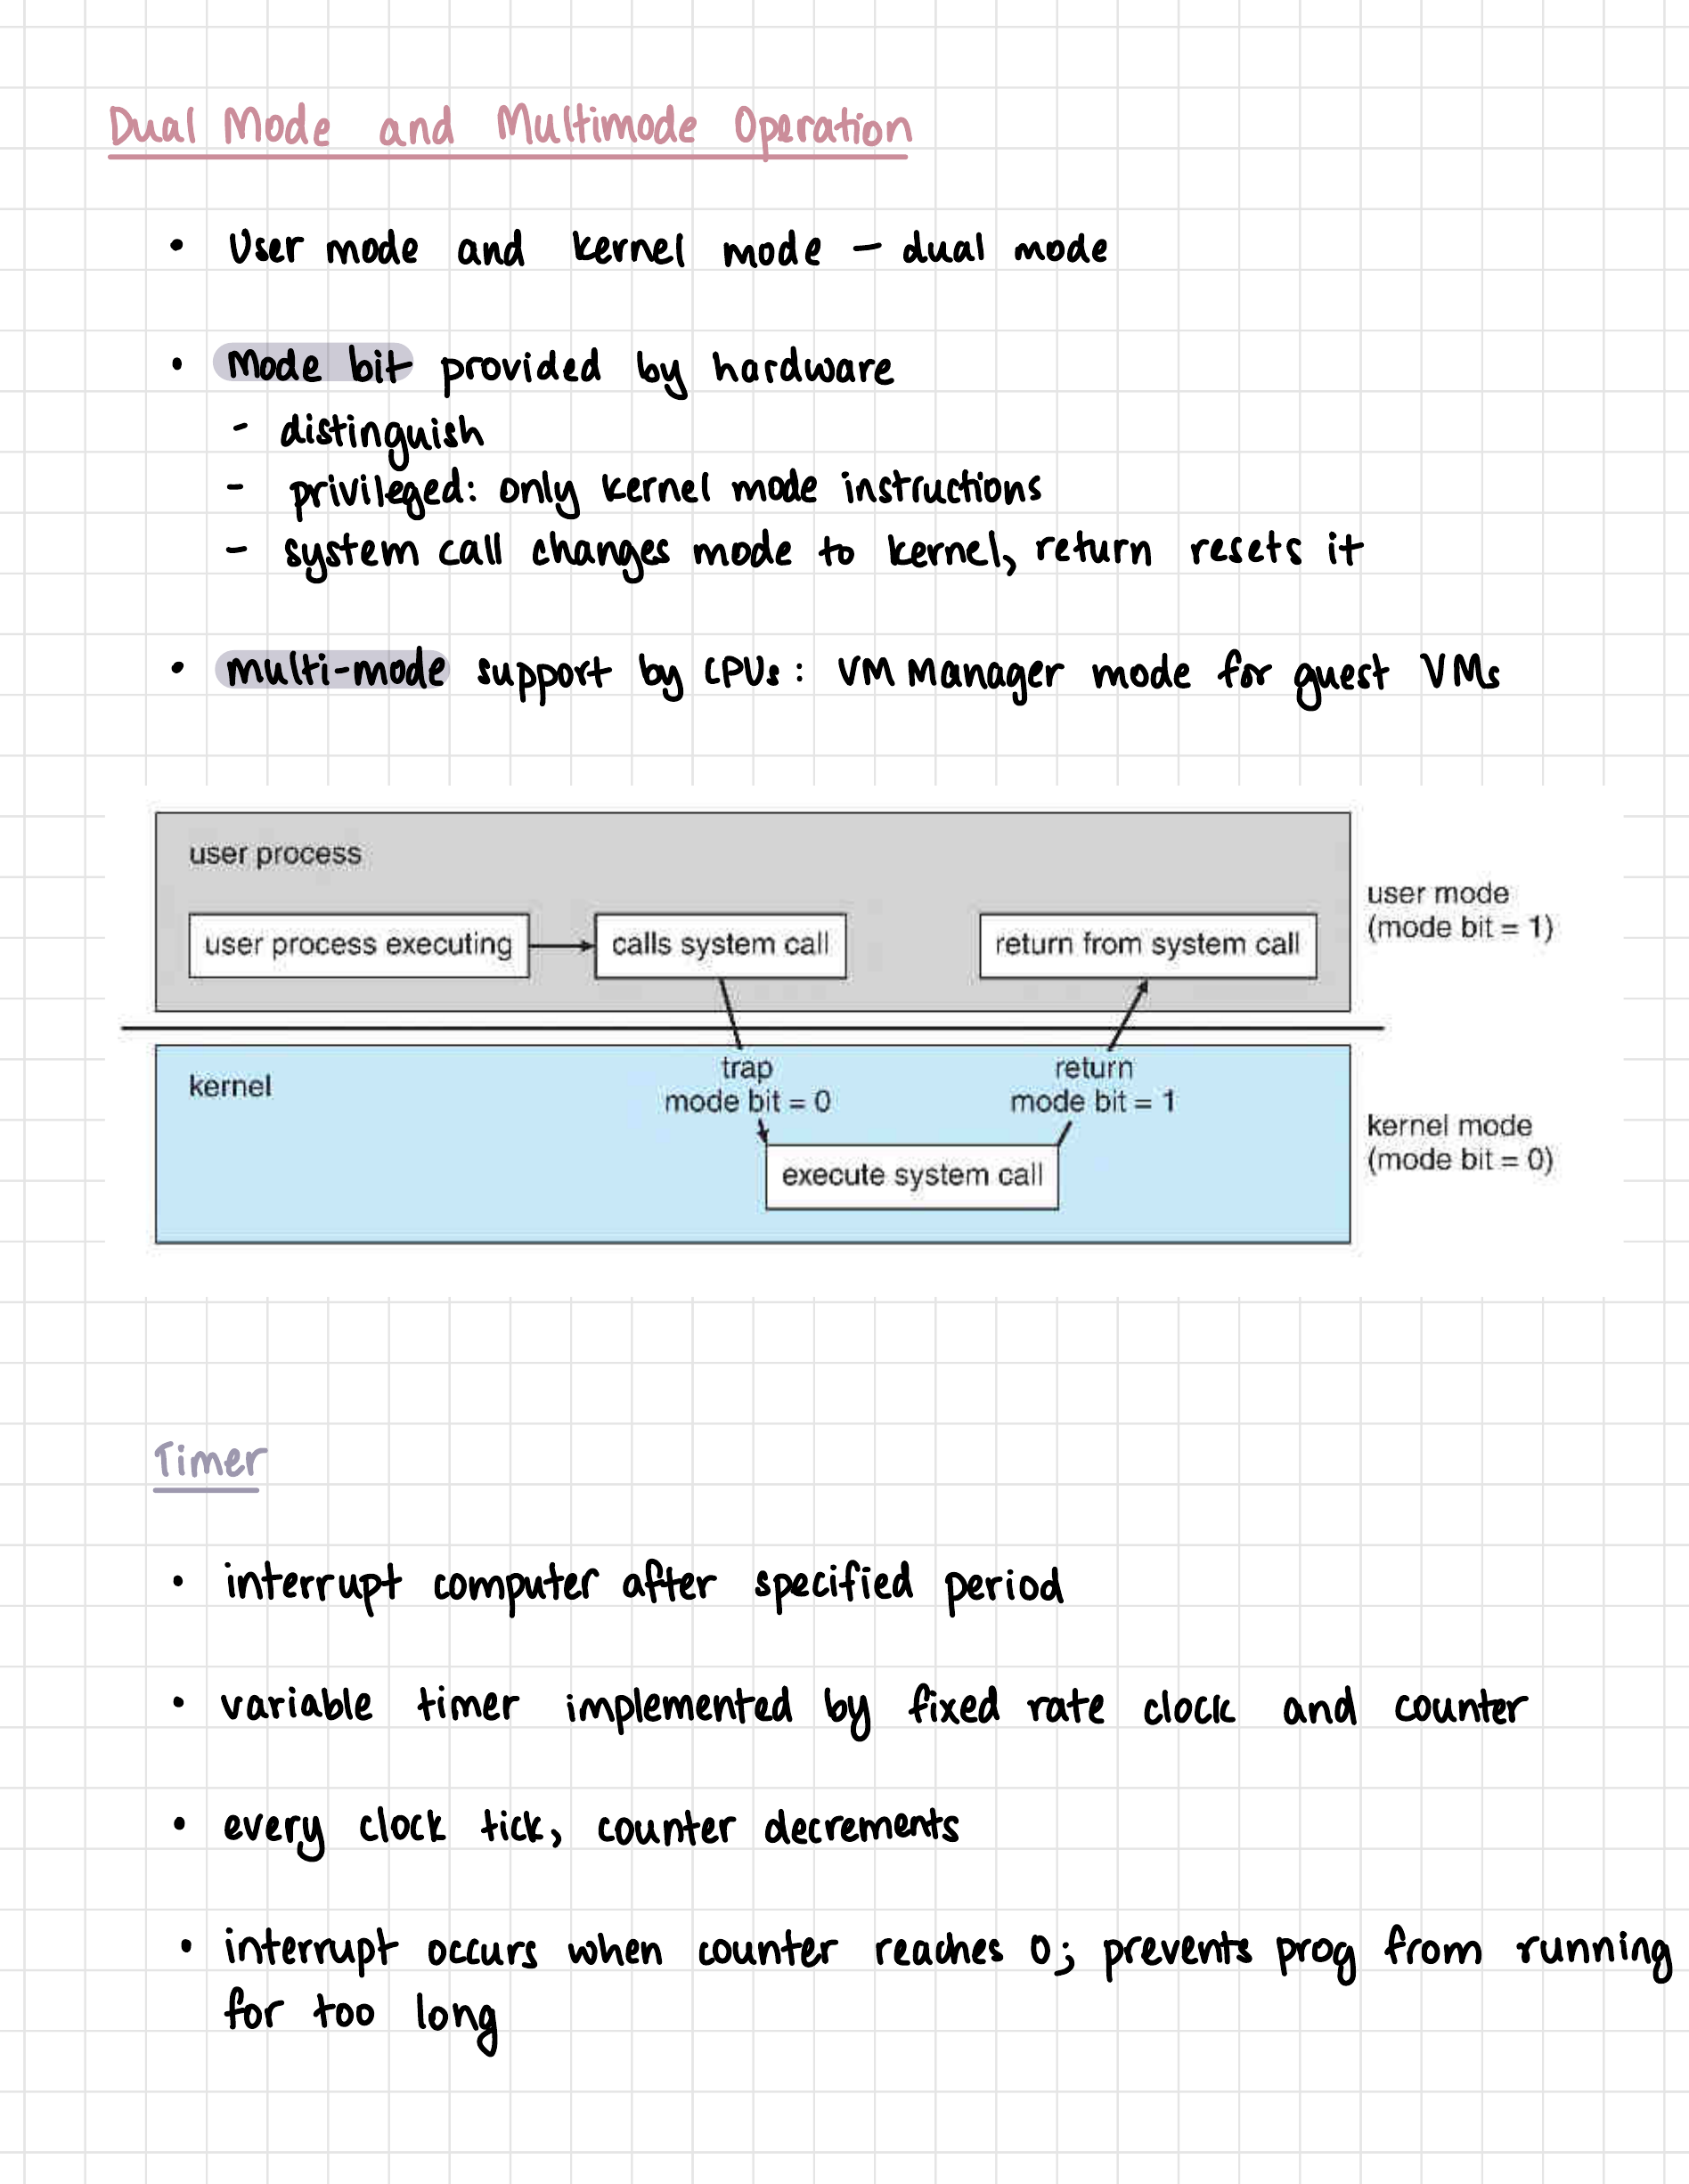 Dual Mode and Multimode Operation
• User mode and kernel mode – dual mode
• Mode bit provided by hardware
- distinguish
- privileged: only kernel mode instructions
- system call changes mode to kernel, return resets it
• multi-mode support by CPUs: VM Manager mode for guest VMs
user process
user process executing
calls system call
return from system call
user mode
(mode bit = 1)
kernel
trap
mode bit = 0
return
mode bit = 1
execute system call
kernel mode
(mode bit = 0)
Timer
• interrupt computer after specified period
• variable timer implemented by fixed rate clock and counter
• every clock tick, counter decrements
• interrupt occurs when counter reaches 0; prevents prog from running
for too long